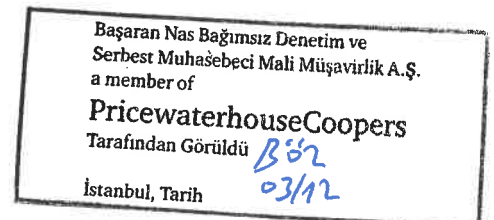 Başaran Nas Bağımsız Denetim ve
Serbest Muhasebeci Mali Müşavirlik A.Ş.
a member of
PricewaterhouseCoopers
Tarafından Görüldü
İstanbul, Tarih 03/12